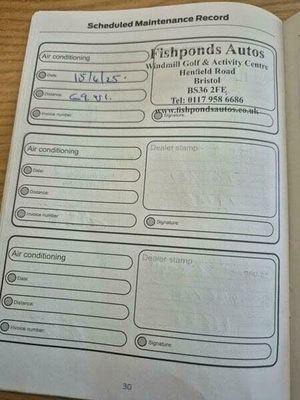 Scheduled Maintenance Record
Air conditioning
Date: 15/4/25.
Distance:
Invoice number:
Fishponds Autos
Windmill Golf & Activity Centre
Henfield Road
Bristol
BS36 2FE
Tel: 0117 958 6686
www.fishpondsautos.co.uk
Signature:
Air conditioning
Date:
Distance:
Invoice number:
Dealer stamp
Signature:
Air conditioning
Date:
Distance:
Invoice number:
Dealer stamp
Signature:
30